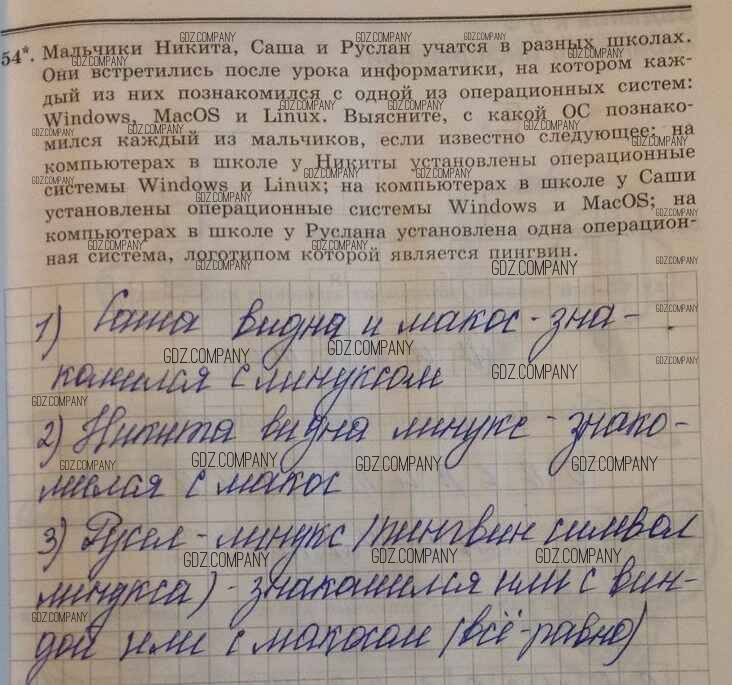 54*. Мальчики Никита, Саша и Руслан учатся в разных школах.
Они встретились после урока информатики, на котором каж-
дый из них познакомился с одной из операционных систем:
Windows, MacOS и Linux. Выясните, с какой ОС познако-
мился каждый из мальчиков, если известно следующее: на
компьютерах в школе у Никиты установлены операционные
системы Windows и Linux; на компьютерах в школе у Саши
установлены операционные системы Windows и MacOS; на
компьютерах в школе у Руслана установлена одна операцион-
ная система, логотипом которой является пингвин.
1) Саша видна и макос - зна-
комился с линуксом
2) Никита видна линукс - знако-
мился с макос
3) Русел - линукс (пингвин символ
линукса) - знакомился или с вин-
дой или с макосом (всё-равно)
GDZ.COMPANY